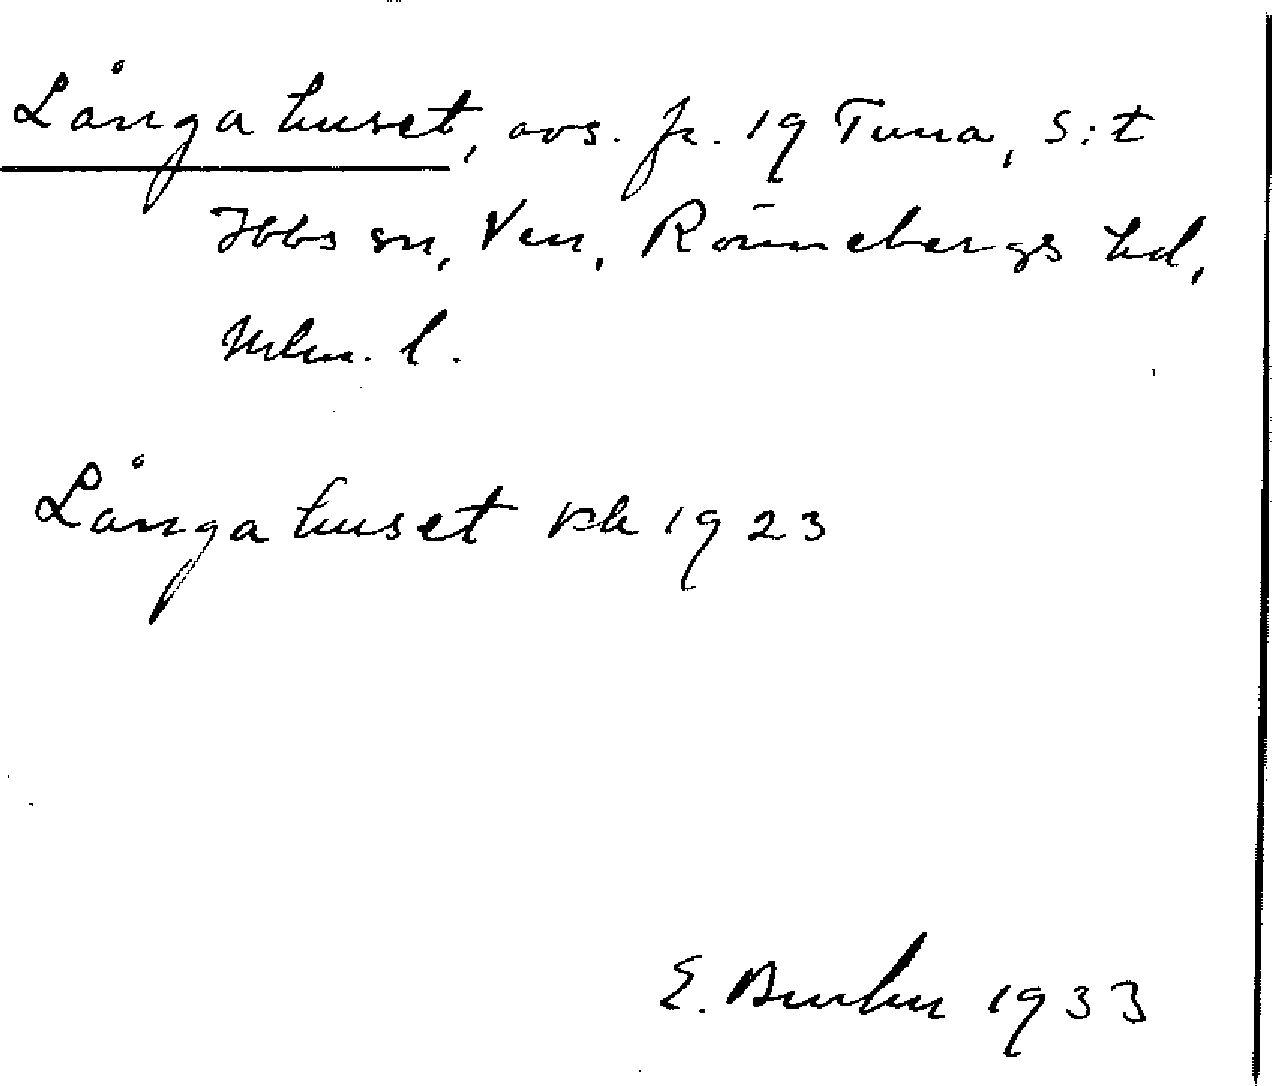 Långahuset, avs. fr. 19 Tuna, S:t
Ibbs sn, Ven, Rönnebergs hd,
Mlm. l.
Långahuset kk 1923
E. 1933